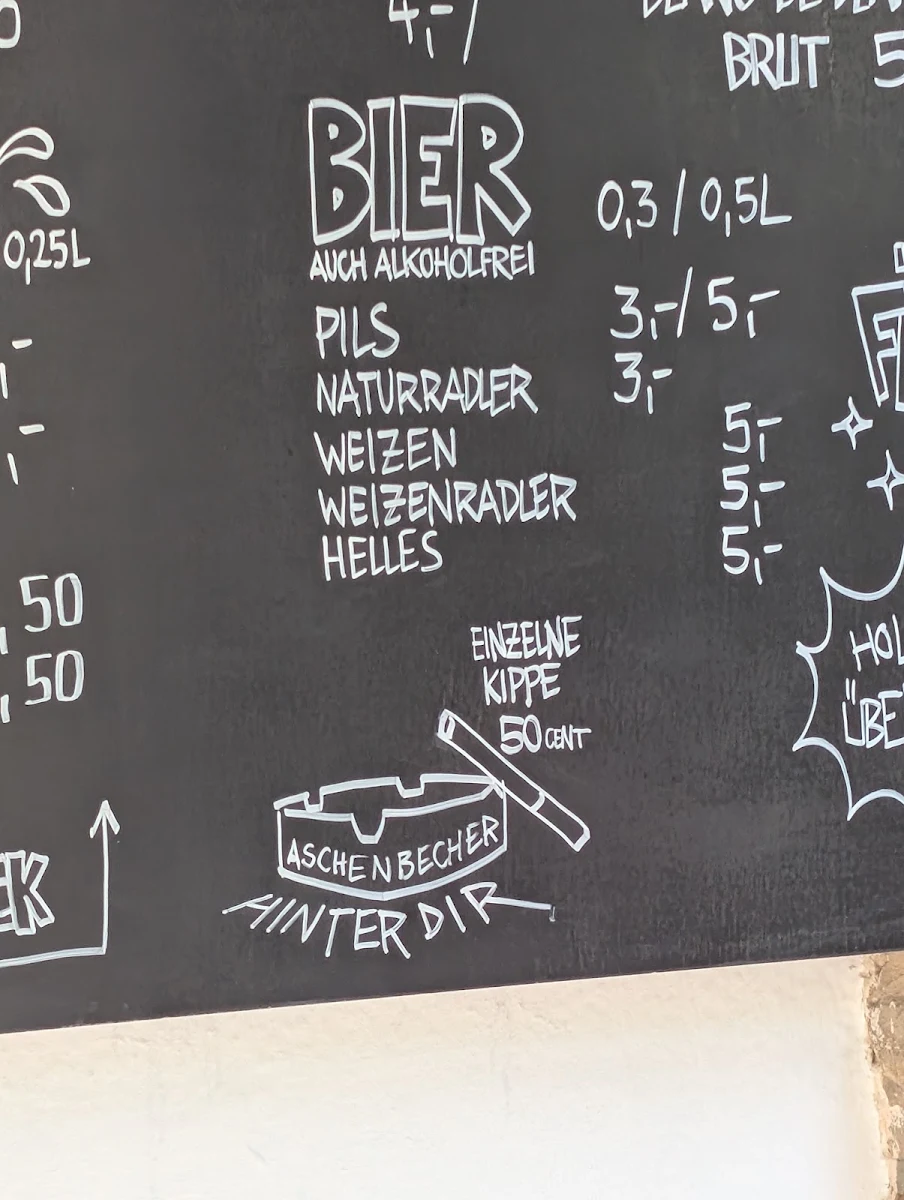 4,-/
BRUT 5
BIER
AUCH ALKOHOLFREI
0,3 / 0,5L
PILS 3,-/ 5,-
NATURRADLER 3,-
WEIZEN 5,-
WEIZENRADLER 5,-
HELLES 5,-
0,25L
,-
,-
,50
,50
EINZELNE
KIPPE
50 CENT
ASCHENBECHER
HINTER DIR